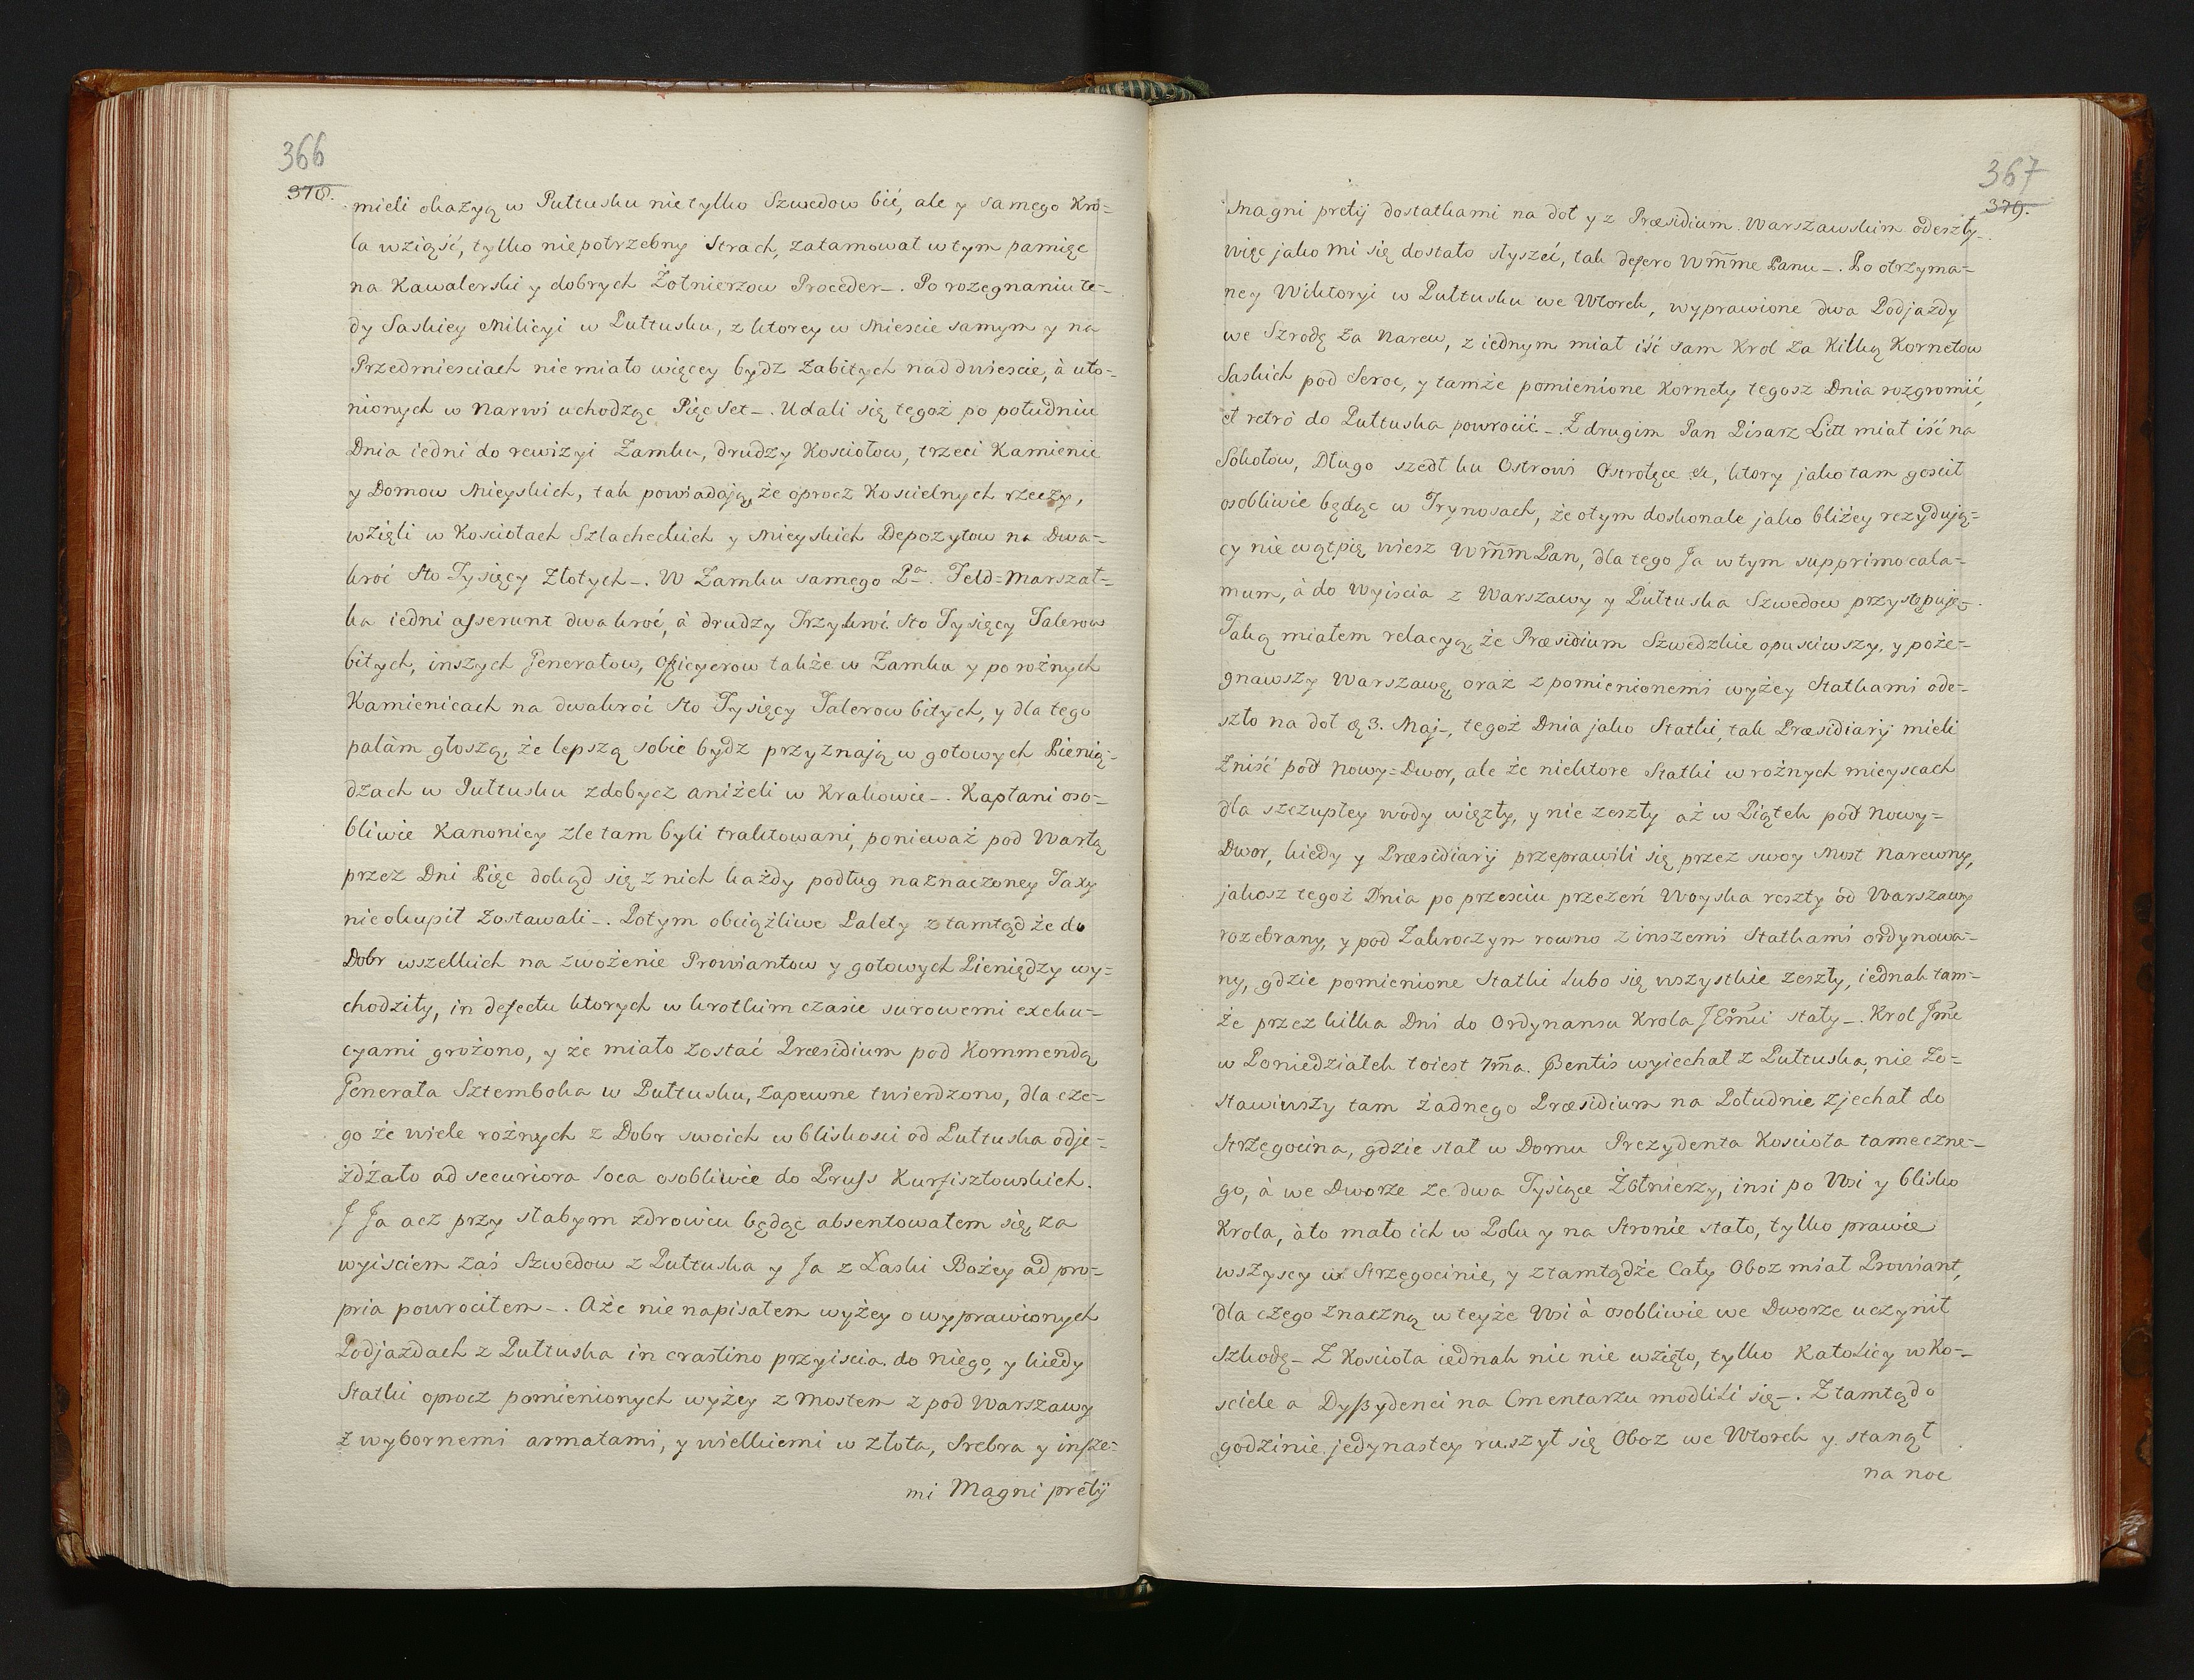 366
378.
mieli okazyą w Pułtusku nie tylko Szwedow bić, ale y samego Kro-
la wziąść, tylko niepotrzebny Strach, zatamował w tym pamięc
na Kawalerski y dobrych Żołnierzow Proceder_. Po rozegnaniu te-
dy Saskiey Milicyi w Pułtusku, z ktorey w Miescie samym y na
Przedmiesciach nie miało więcey bydz zabitych nad dwiescie, à uto-
nionych w Narwi uchodząc Pięc Set_. Udali się tegoż po południu
Dnia iedni do rewizyi Zamku, drudzy Kosciołow, trzeci Kamienic
y Domow Mieyskich, tak powiadają, że oprocz Koscielnych rzeczy,
wzięli w Kosciołach Szlacheckich y Mieyskich Depozytow na Dwa-
kroć Sto Tysięcy Złotych_. W Zamku samego Pa. Feld=Marszał-
ka iedni asserunt dwakroć, à drudzy Trzykroć Sto Tysięcy Talerow
bitych, inszych Generałow, Officyerow także w Zamku y po rożnych
Kamienicach na dwakroć Sto Tysięcy Talerow bitych, y dla tego
palàm głoszą, że lepszą sobie bydz przyznają w gotowych Pienią-
dzach w Pułtusku zdobycz aniżeli w Krakowie_. Kapłani oso-
bliwie Kanonicy zle tam byli traktowani, ponieważ pod Wartą
przez Dni Pięc dokąd się z nich każdy podług naznaczoney Taxy
nie okupił zostawali_. Potym obciążliwe Palety ztamtąd że do
Dobr wszelkich na zwożenie Prowiantow y gotowych Pieniędzy wy-
chodziły, in defectu ktorych w krotkim czasie surowemi exeku-
cyami grożono, y że miało zostać Præsidium pod Kommendą
Generała Sztemboka w Pułtusku, zapewne twierdzono, dla cze-
go że wiele rożnych z Dobr swoich w bliskosci od Pułtuska odje-
żdżało ad securiora loca osobliwie do Pruss Kurfisztowskich.
J Ja acz przy słabym zdrowiu będąc absentowałem się, za
wyisciem zaś Szwedow z Pułtuska y Ja z Łaski Bożey ad pro-
pria powrociłem_. Aże nie napisałem wyżey o wyprawionych
Podjazdach z Pułtuska in crastino przyiscia do niego, y kiedy
Statki oprocz pomienionych wyżey z mostem z pod Warszawy
z wybornemi armatami, y wielkiemi w złota, Srebra y insze-
mi Magni pretij
367
379.
Magni pretij dostatkami na doł y z Præsidium Warszawskim odeszły_
więc jako mi się dostało słyszeć, tak defero Wmme Panu_. Po otrzyma-
ney Wiktoryi w Pułtusku we Wtorek, wyprawione dwa Podjazdy
we Szrodę za Narew, z iednym miał iść sam Krol za Kilką Kornetow
Saskich pod Seroc, y tamże pomienione Kornety tegosz Dnia rozgromić,
et retrò do Pułtuska powrocić_. Z drugim Pan Pisarz Litt miał iść na
Sokołow, Długo szedł ku Ostrowi Ostrołęce &c, ktory jako tam goscił
osobliwie będąc w Trynosach, że o tym doskonale jako bliżey rezydują-
cy nie wątpię wiesz Wmm Pan, dla tego Ja w tym supprimo cala-
mum, à do wyiscia z Warszawy y Pułtuska Szwedow przystępuję_.
Taką miałem relacyą, że Præsidium Szwedzkie opusciwszy, y poże-
gnawszy Warszawę oraz z pomienionemi wyżey Statkami ode-
szło na doł 3. Maj_, tegoż Dnia jako Statki, tak Præsidiarij mieli
zniść pod Nowy=Dwor, ale że niektore Statki w rożnych mieyscach
dla szczupłey wody więzły, y nie zeszły aż w Piątek pod Nowy=
Dwor, kiedy y Præsidiarij przeprawili się przez swoy Most Narewny,
jakosz tegoż Dnia po przesciu przezeń Woyska reszty od Warszawy
rozebrany, y pod Zakroczym rowno z inszemi Statkami ordynowa-
ny, gdzie pomienione Statki lubo się wszystkie zeszły, iednak tam-
że przez kilka Dni do Ordynansu Krola JEmci stały_. Krol Jme
w Poniedziałek toiest 7ma. Præsentis wyiechał z Pułtuska, nie zo-
stawiwszy tam żadnego Præsidium na Południe zjechał do
Strzegocina, gdzie stał w Domu Prezydenta Koscioła tameczne-
go, à we Dworze ze dwa Tysiące Żołnierzy, insi po Wsi y blisko
Krola, à to mało ich w Polu y na Stronie stało, tylko prawie
wszyscy w Strzegocinie, y ztamtądże Cały Oboz miał Prowiant,
dla czego znaczną w teyże Wsi à osobliwie we Dworze uczynił
szkodę_ Z Koscioła iednak nic nie wzięto, tylko Katolicy w Ko-
sciele a Dyssydenci na Cmentarzu modlili się_. Ztamtąd o
godzinie jedynastey ruszył się Oboz we Wtorek y stanął
na noc